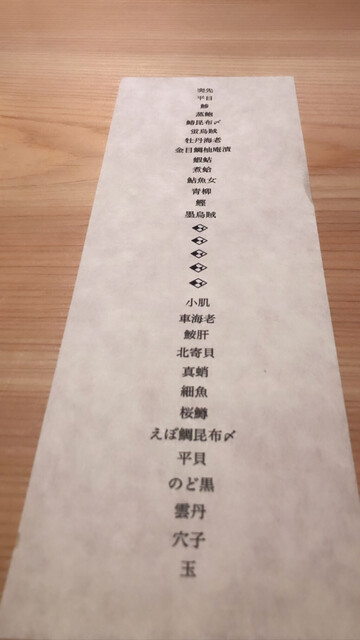 平目
蒸鮑
鰆昆布〆
蛍烏賊
牡丹海老
金目鯛柚庵漬
蝦蛄
煮蛤
鮎魚女
青柳
鰹
墨烏賊
小肌
車海老
鮟肝
北寄貝
真蛸
細魚
桜鱒
えぼ鯛昆布〆
平貝
のど黒
雲丹
穴子
玉